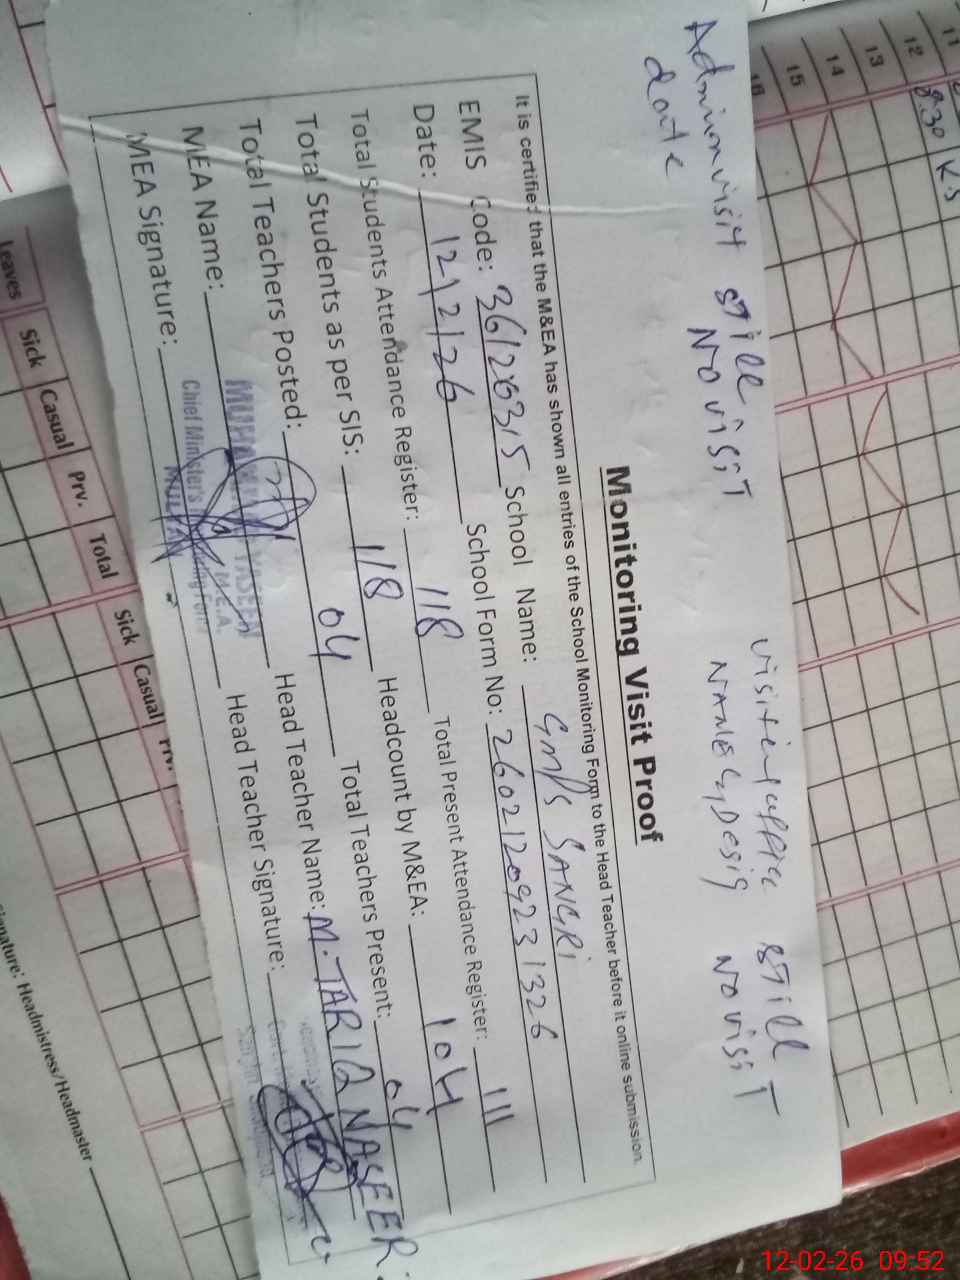 Admin visit still visiting officer still
date No visit Name & Desig No visit
Monitoring Visit Proof
It is certified that the M&EA has shown all entries of the School Monitoring Form to the Head Teacher before it online submission.
EMIS Code: 36120315 School Name: GMPS SANGRI
Date: 12/2/26 School Form No: 26021209231326
Total Students Attendance Register: 118 Total Present Attendance Register: 111
Total Students as per SIS: 118 Headcount by M&EA: 104
Total Teachers Posted: 04 Total Teachers Present: 04
MEA Name: Head Teacher Name: M. TARIQ NASEER
MEA Signature: Head Teacher Signature:
YASEEN
M.E.A.
Chief Minister's Monitoring Force
MULTAN
11
12
13
14
15
16
8:30
Leaves
Sick Casual Prv. Total Sick Casual Prv.
Signature: Headmistress/Headmaster
12-02-26 09:52